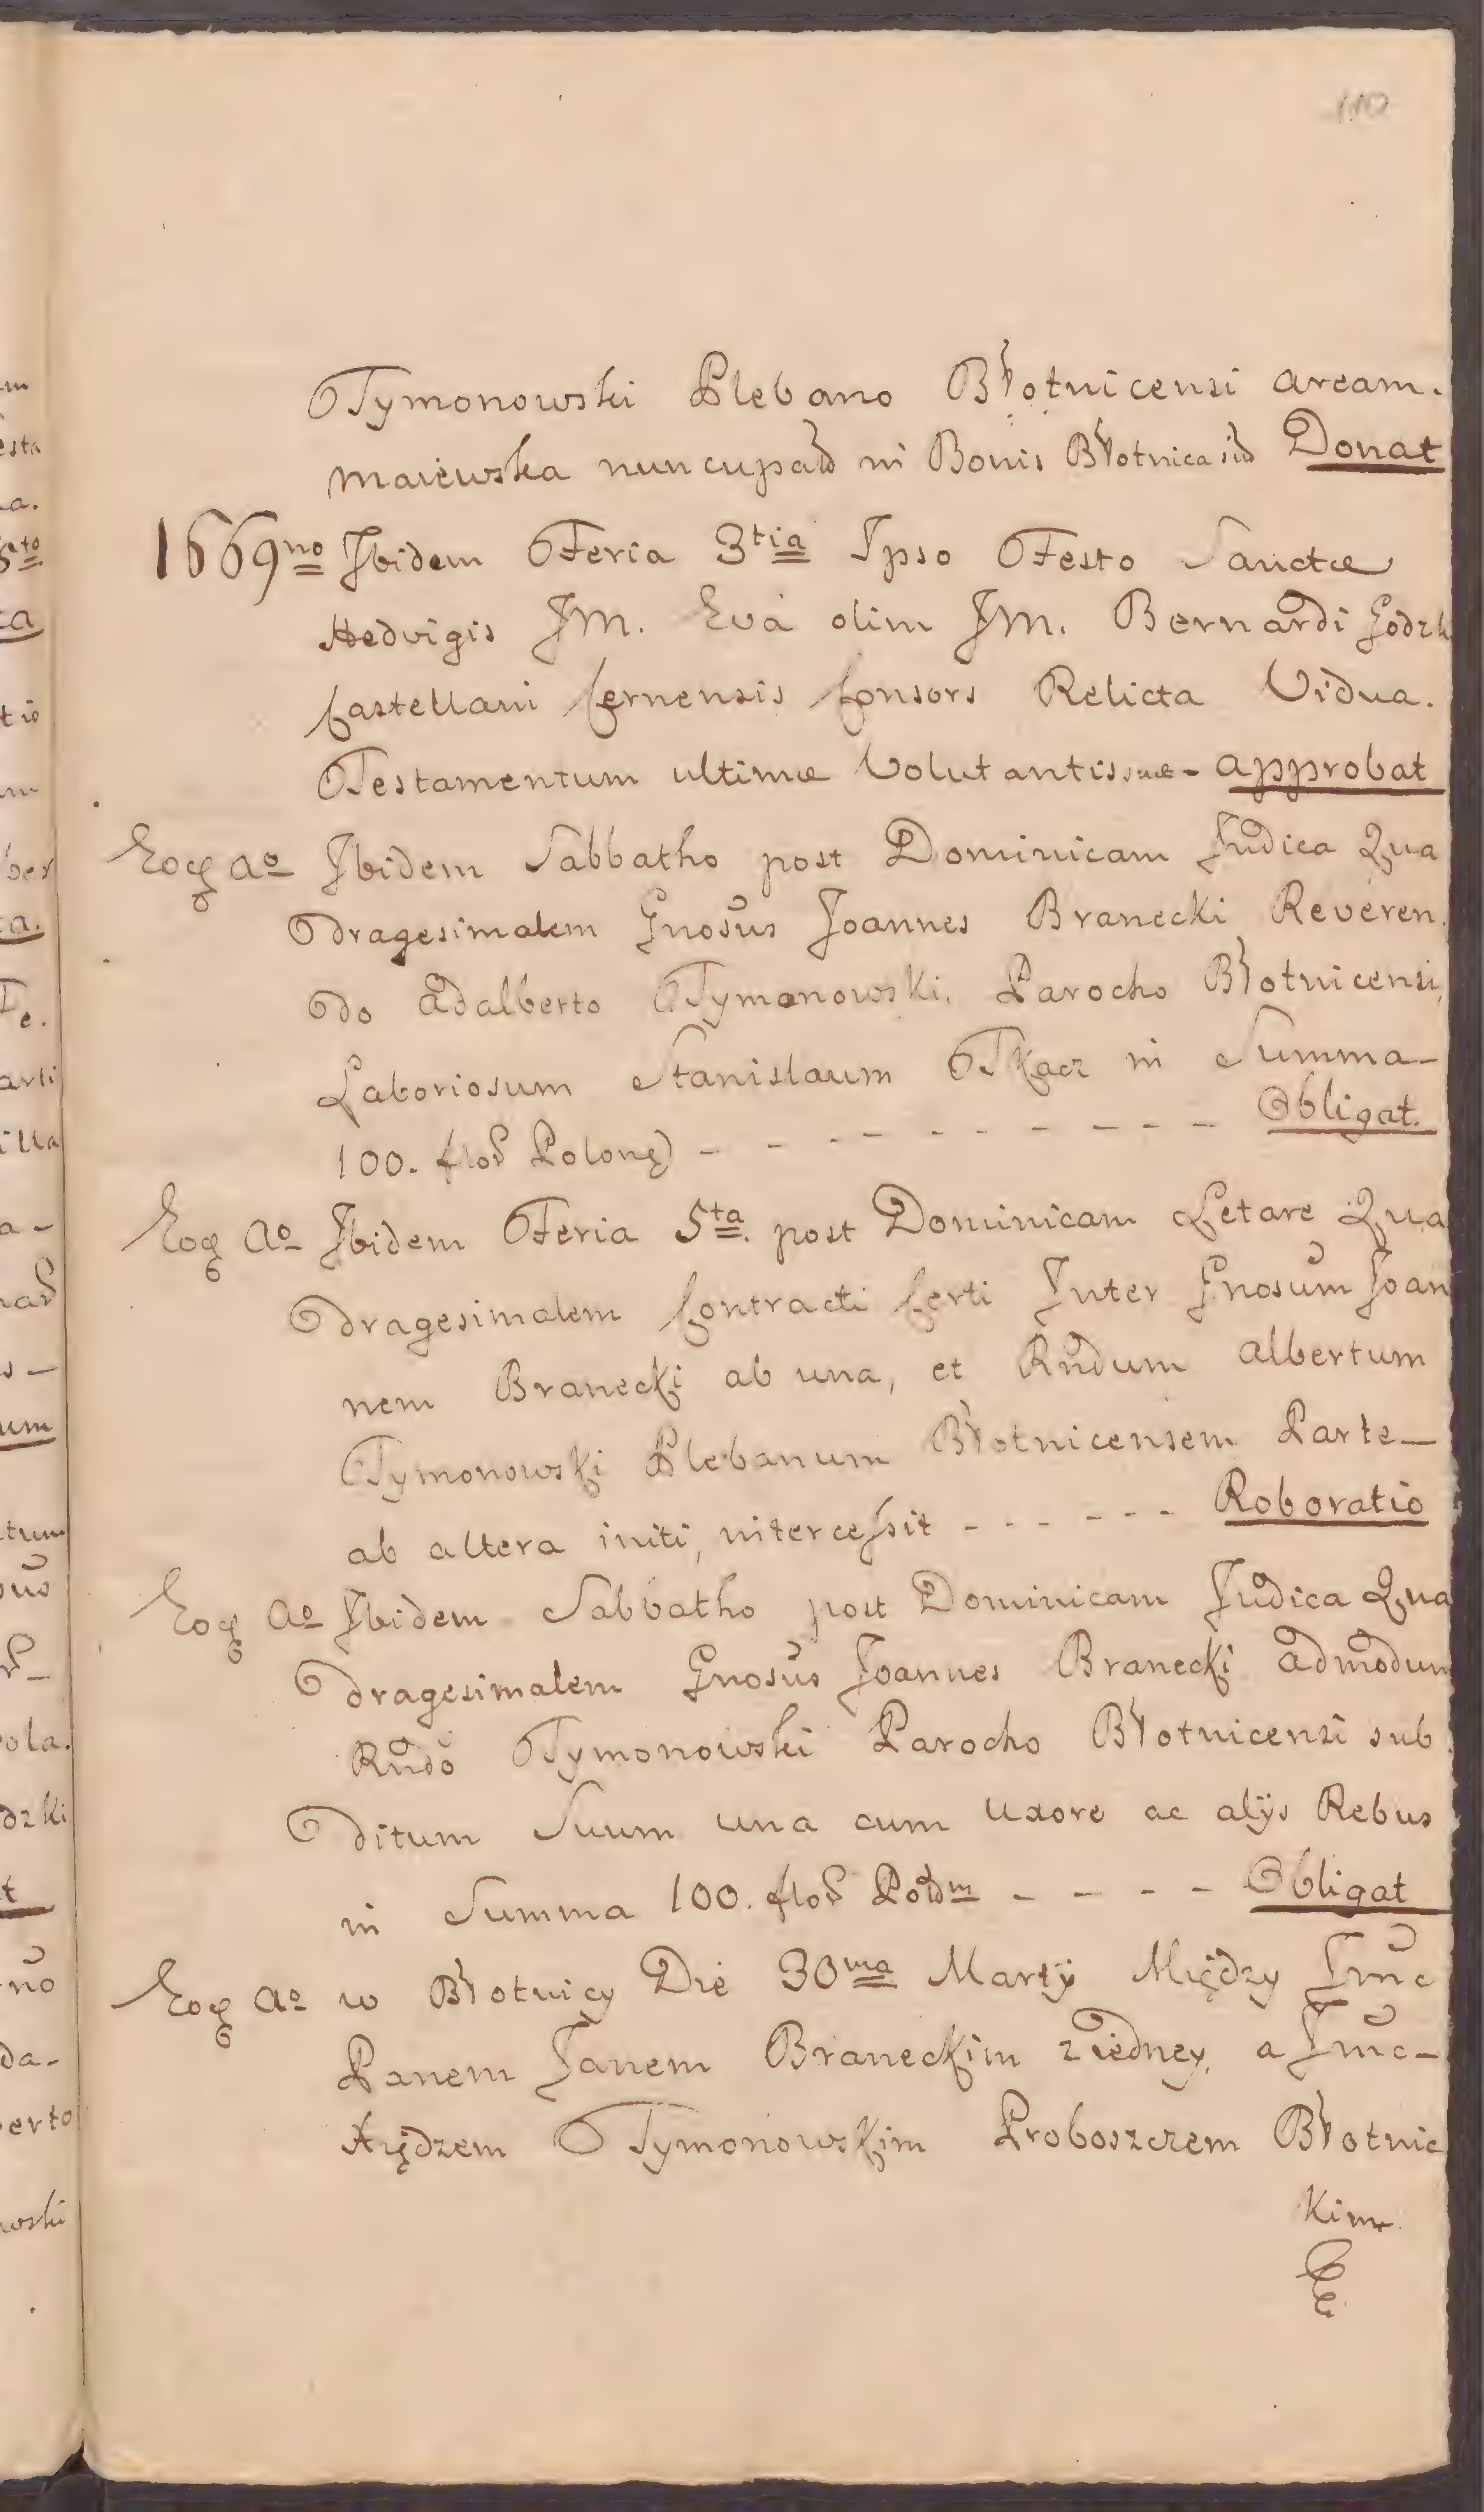 110
Tymonowski Plebano Błotnicensi aream.
Maiewska nuncupatd in Bonis Błotnica sitd Donat
1669no Ibidem Feria 3tia Ipso Festo Sanctæ
Hedvigis JM. Eva olim JM. Bernardi Godzk
Castellani Cernensis Consors Relicta Vidua.
Testamentum ultimæ Voluntantis suæ - approbat
Eoq ao Ibidem Sabbatho post Dominicam Judica Qua
dragesimalem Gnosus Joannes Branecki Reveren
do Adalberto Tymonowski, Parocho Błotnicensi,
Laboriosum Stanislaum Tkacz in Summa -
100. flos Polonq) - - - - - - - - - Obligat.
Eoq Ao Ibidem Feria 5ta post Dominicam Letare Qua
dragesimalem Contracti Certi Inter Gnosum Joan
nem Branecki ab una, et Rndum Albertum
Tymonowski Plebanum Błotnicensem Parte -
ab altera initi, intercessit - - - - - - Roboratio
Eoq Ao Ibidem Sabbatho post Dominicam Judica Qua
dragesimalem Gnosus Joannes Branecki admodum
Rndo Tymonowski Parocho Błotnicensi sub
ditum Suum una cum Uxore ac alijs Rebus
in Summa 100. flos - - - - Obligat
Eoq Ao w Błotnicy Die 30ma Martij Między Jmc
Panem Janem Braneckim z iedney, a Jmc -
Xiędzem Tymonowskim Proboszczem Błotnic
kim